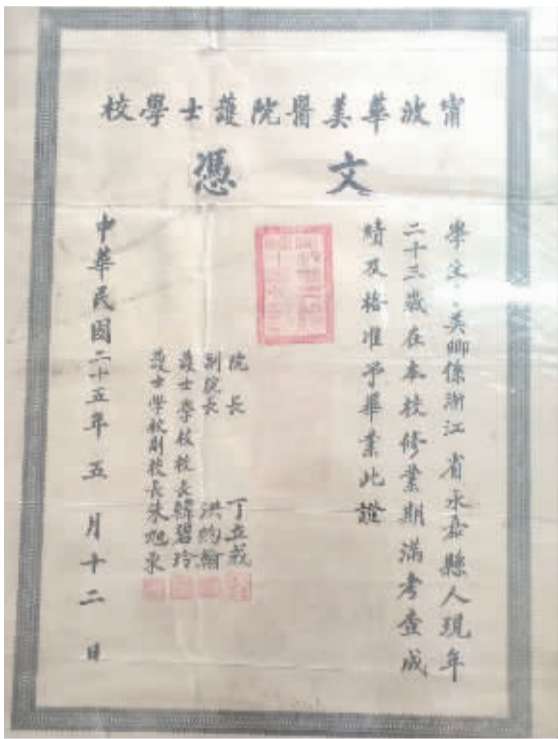 甯波華美醫院護士學校
文憑
學生美卿係浙江省永嘉縣人現年
二十三歲在本校修業期滿考查成
績及格准予畢業此證
院長 丁立成
副院長 洪約翰
護士學校校長韓碧玲
護士學校副校長朱旭東
中華民國二十五年五月十二日